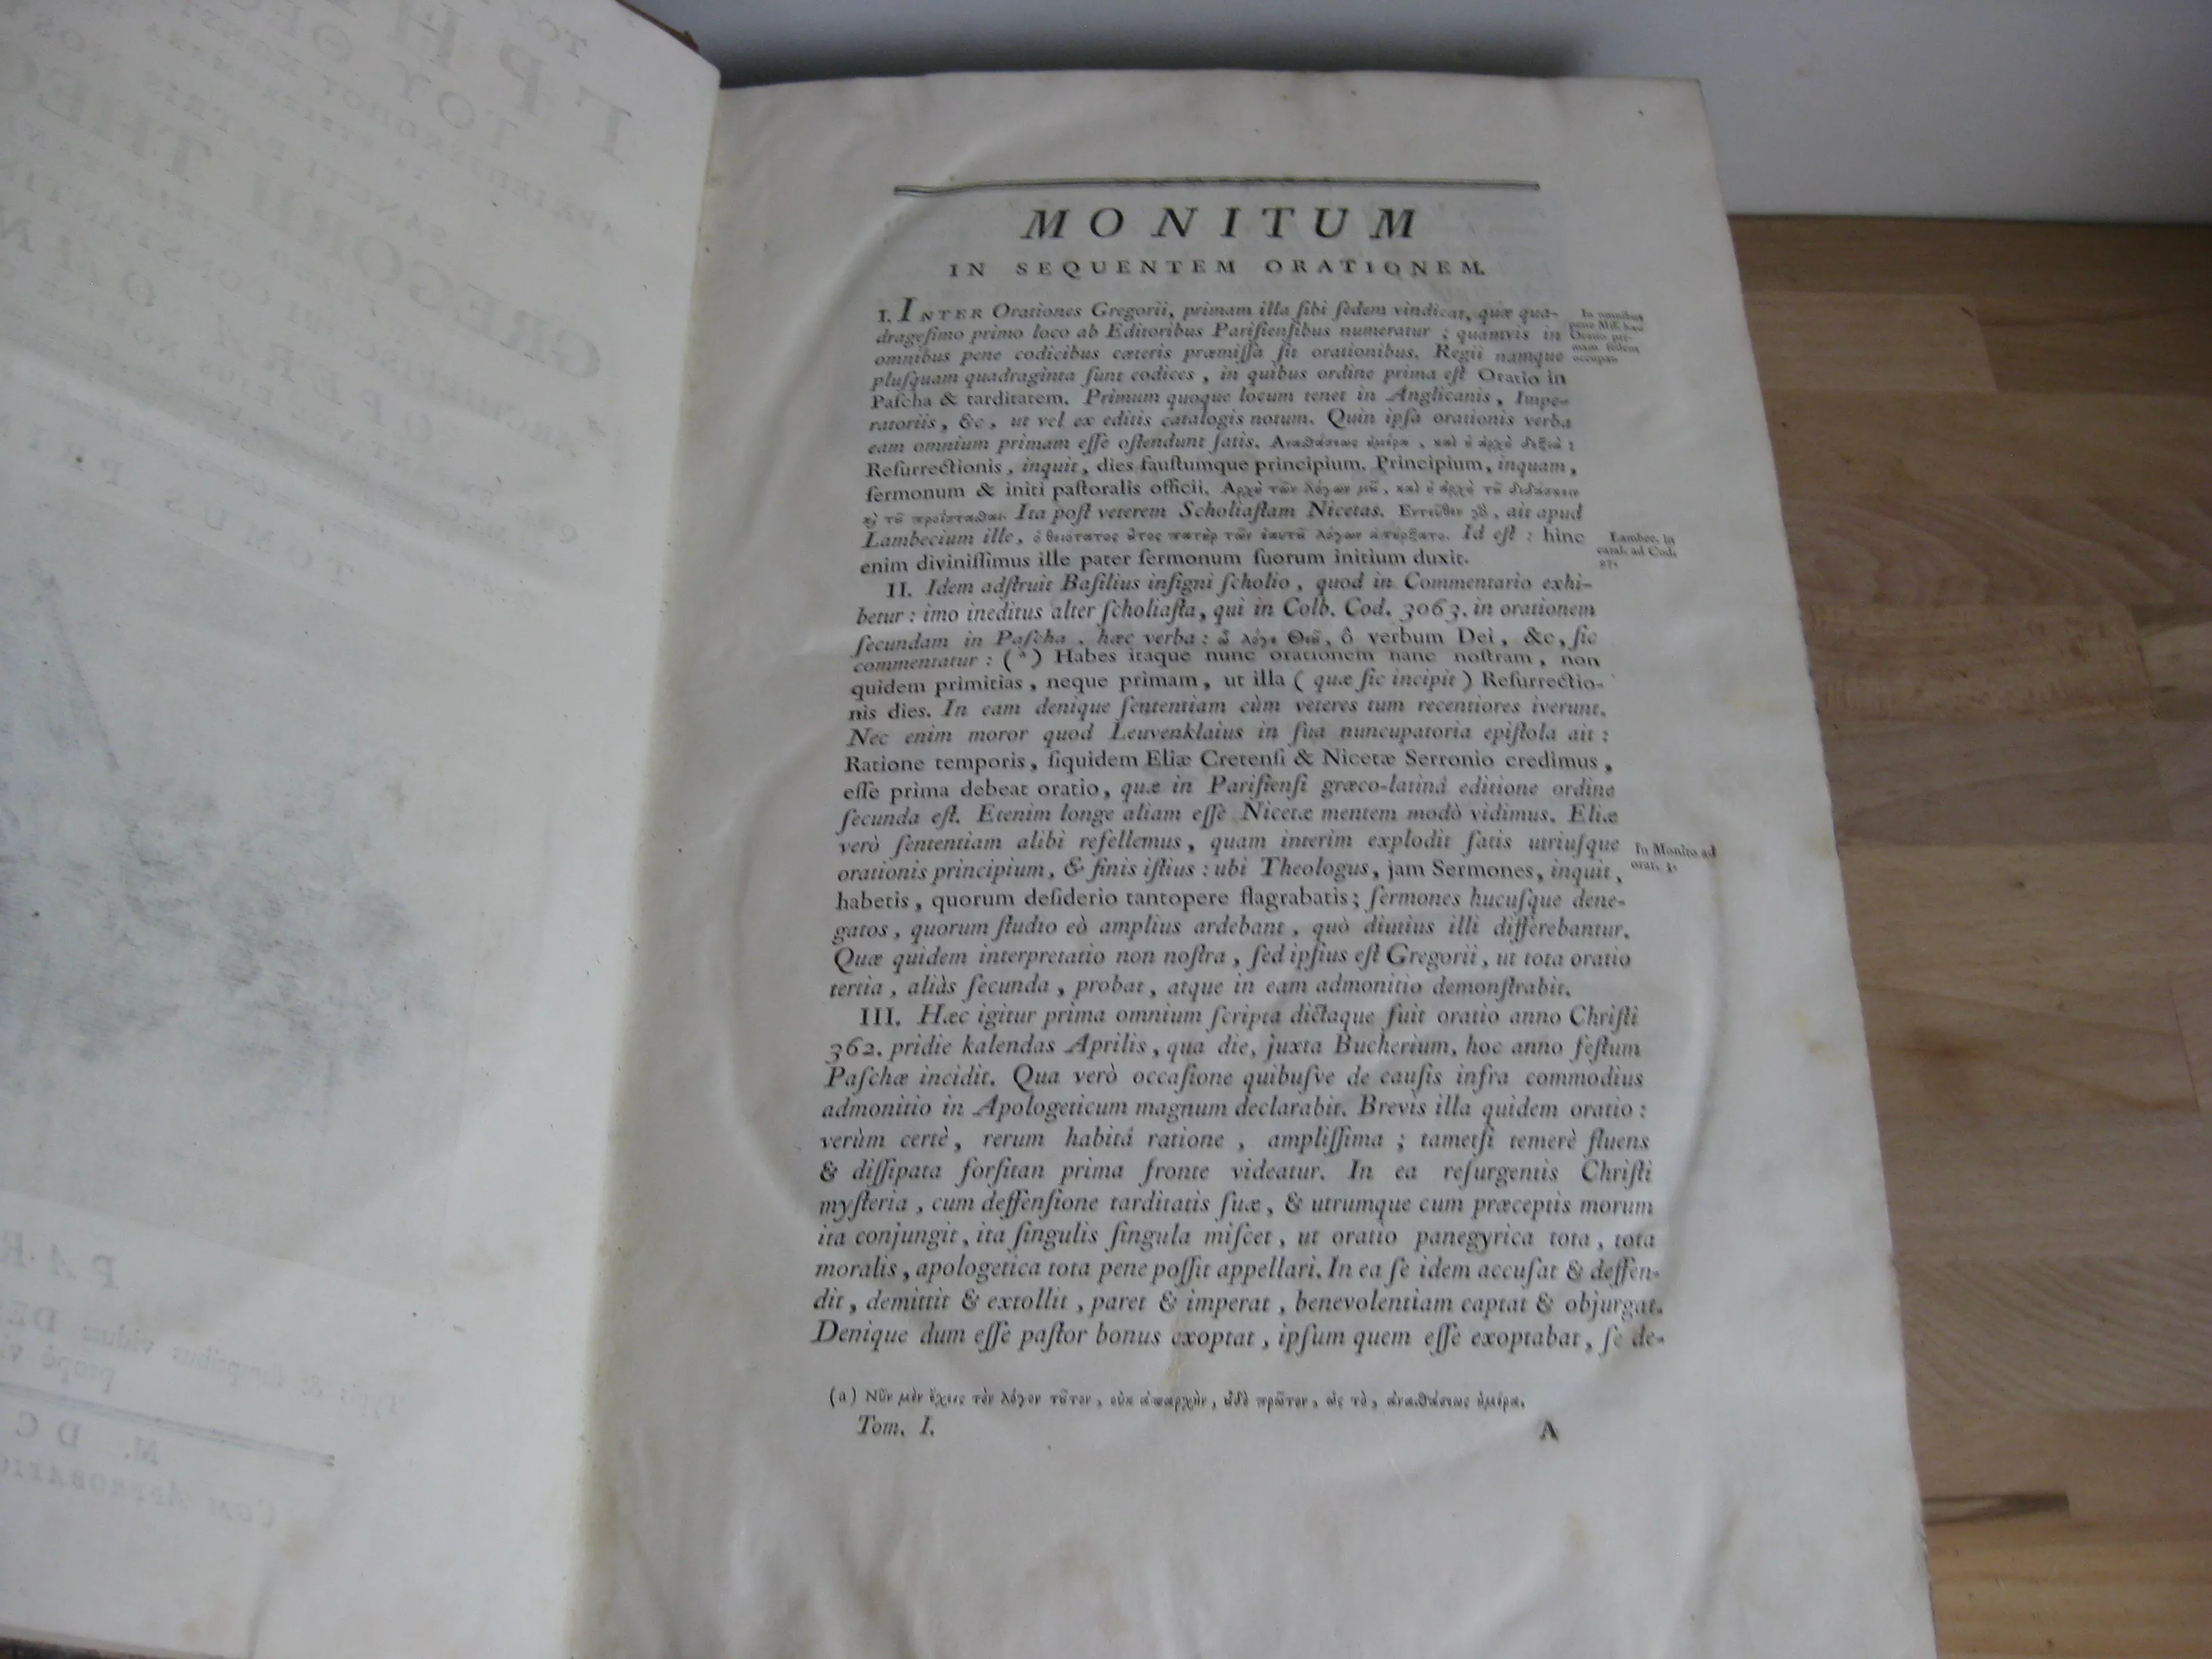 MONITUM
IN SEQUENTEM ORATIONEM.
I. INTER Orationes Gregorii, primam illa ſibi ſedem vindicat, quæ qua-
drageſimo primo loco ab Editoribus Pariſienſibus numeratur ; quamvis in
omnibus pene codicibus cæteris præmiſſa ſit orationibus. Regii namque
pluſquam quadraginta ſunt codices, in quibus ordine prima eſt Oratio in
Paſcha & tarditatem. Primum quoque locum tenet in Anglicanis, Impe-
ratoriis, &c, ut vel ex editis catalogis notum. Quin ipſa orationis verba
eam omnium primam eſſe oſtendunt ſatis. Αναστάσεως ἡμέρα, καὶ ἡ ἀρχὴ δεξιά :
Reſurrectionis, inquit, dies fauſtumque principium. Principium, inquam,
ſermonum & initi paſtoralis officii.
Ita poſt veterem Scholiaſtam Nicetas. ait apud
Lambecium ille, ὁ θειότατος ὗτος πατὴρ τῶν ἑαυτῦ λόγων ἀπήρξατο. Id eſt : hinc
enim diviniſſimus ille pater ſermonum ſuorum initium duxit.
In omnibus
pene Mſſ. hæc
Oratio pri-
mam ſedem
occupat.
Lambec. in
catal. ad Cod.
II. Idem adſtruit Baſilius inſigni ſcholio, quod in Commentario exhi-
betur : imo ineditus alter ſcholiaſta, qui in Colb. Cod. 3063. in orationem
ſecundam in Paſcha, hæc verba : ὦ λόγε Θεῦ, ô verbum Dei, &c, ſic
commentatur : (a) Habes itaque nunc orationem hanc noſtram, non
quidem primitias, neque primam, ut illa ( quæ ſic incipit ) Reſurrectio-
nis dies. In eam denique ſententiam cùm veteres tum recentiores iverunt.
Nec enim moror quod Leuvenklaius in ſua nuncupatoria epiſtola ait :
Ratione temporis, ſiquidem Eliæ Cretenſi & Nicetæ Serronio credimus,
eſſe prima debeat oratio, quæ in Pariſienſi græco-latinâ editione ordine
ſecunda eſt. Etenim longe aliam eſſe Nicetæ mentem modò vidimus. Eliæ
verò ſententiam alibi refellemus, quam interim explodit ſatis utriuſque
orationis principium, & finis iſtius : ubi Theologus, jam Sermones, inquit,
habetis, quorum deſiderio tantopere flagrabatis; ſermones hucuſque dene-
gatos, quorum ſtudio eò amplius ardebant, quò diutius illi differebantur.
Quæ quidem interpretatio non noſtra, ſed ipſius eſt Gregorii, ut tota oratio
tertia, aliàs ſecunda, probat, atque in eam admonitio demonſtrabit.
In Monito ad
orat. 3.
III. Hæc igitur prima omnium ſcripta dictaque fuit oratio anno Chriſti
362. pridie kalendas Aprilis, qua die, juxta Bucherium, hoc anno feſtum
Paſchæ incidit. Qua verò occaſione quibuſve de cauſis infra commodius
admonitio in Apologeticum magnum declarabit. Brevis illa quidem oratio :
verùm certè, rerum habitâ ratione, ampliſſima ; tametſi temerè fluens
& diſſipata forſitan prima fronte videatur. In ea reſurgentis Chriſti
myſteria, cum deffenſione tarditatis ſuæ, & utrumque cum præceptis morum
ita conjungit, ita ſingulis ſingula miſcet, ut oratio panegyrica tota, tota
moralis, apologetica tota pene poſſit appellari. In ea ſe idem accuſat & deffen-
dit, demittit & extollit, paret & imperat, benevolentiam captat & objurgat.
Denique dum eſſe paſtor bonus exoptat, ipſum quem eſſe exoptabat, ſe de-
(a) Νῦν μὲν ἔχεις τὸν λόγον τῦτον, οὐκ ἀπαρχὴν, ὐδὲ πρῶτον, ὡς τὸ, ἀναστάσεως ἡμέρα.
Tom. I. A